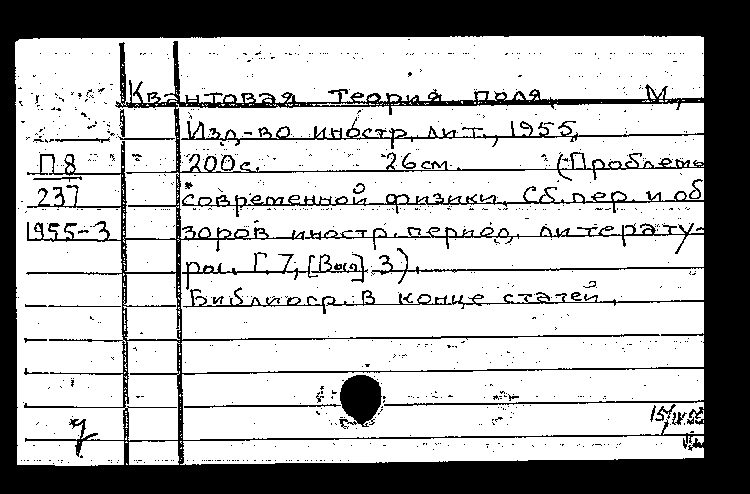 Квантовая теория поля, М.,
Изд-во иностр. лит., 1955,
П8 200с. 26см. (Проблемы
237 современной физики. Сб. пер. и об
1955-3 зоров иностр. период. литерату-
ры. Г. 7, [Вып] 3).
Библиогр. в конце статей.